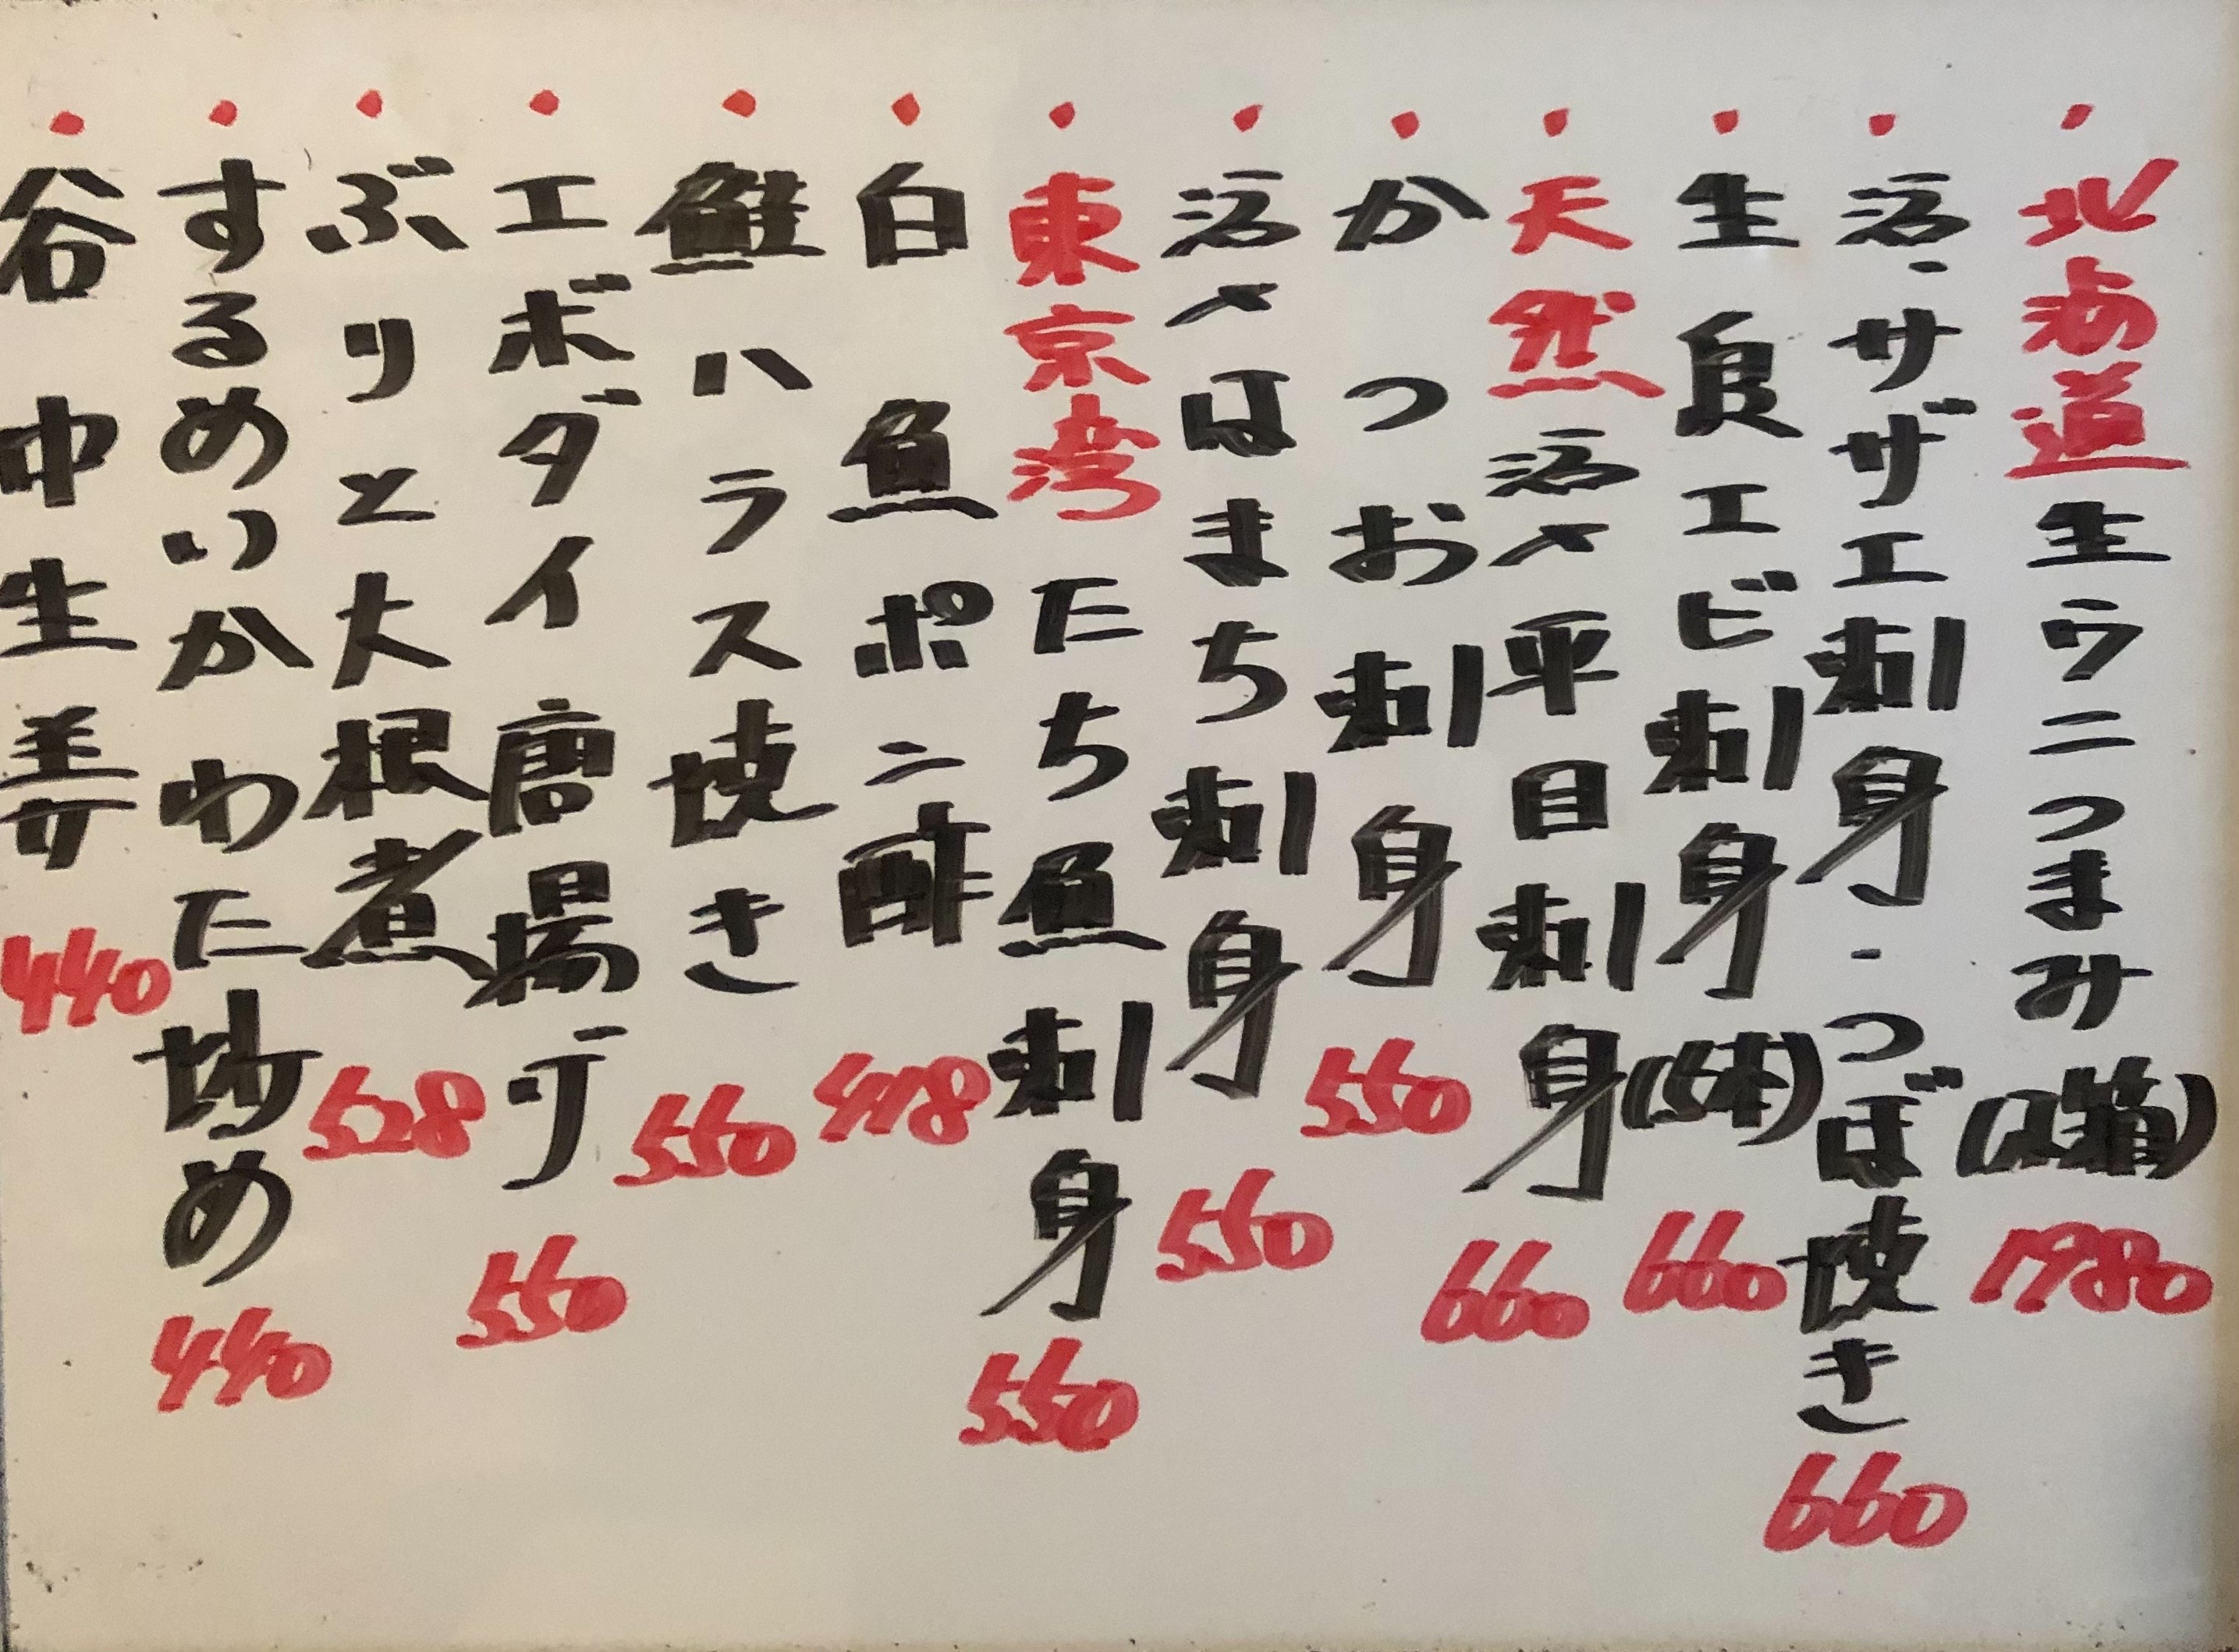 ・北海道生ウニつまみ(1箱) 1980
・活・サザエ刺身・つぼ焼き 660
・生良エビ刺身(5本) 660
・天然活〆平目刺身 660
・かつお刺身 550
・活〆はまち刺身 550
・東京湾たち魚刺身 550
・白魚ポン酢 418
・鮭ハラス焼き 550
・エボダイ唐揚げ 550
・ぶりと大根煮 528
・するめいかわた炒め 440
・谷中生姜 440